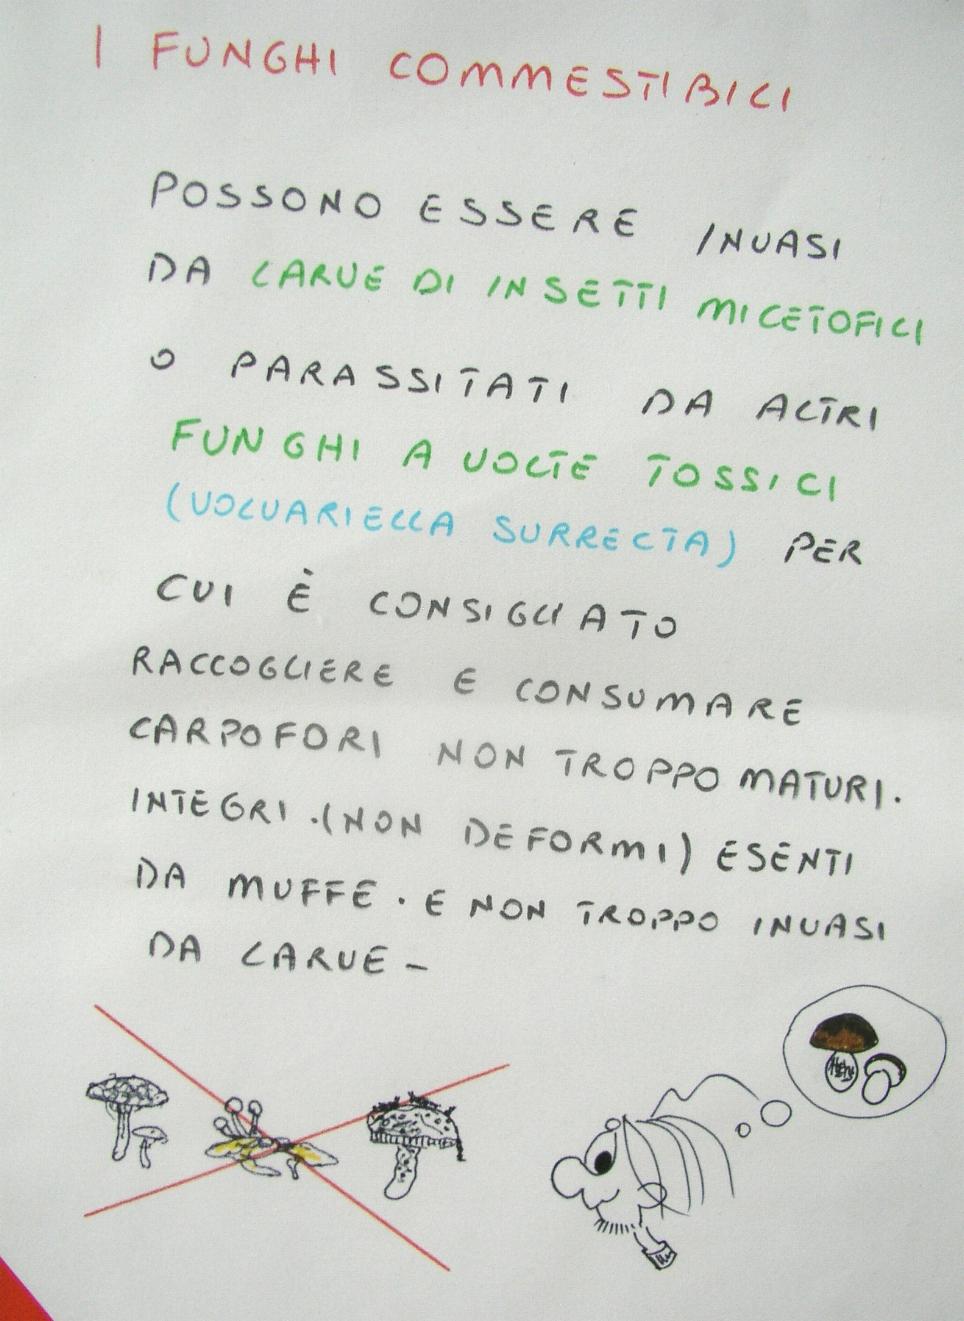 I FUNGHI COMMESTIBILI
POSSONO ESSERE INVASI
DA LARVE DI INSETTI MICETOFILI
O PARASSITATI DA ALTRI
FUNGHI A VOLTE TOSSICI
(VOLVARIELLA SURRECTA) PER
CUI È CONSIGLIATO
RACCOGLIERE E CONSUMARE
CARPOFORI NON TROPPO MATURI.
INTEGRI.(NON DEFORMI) ESENTI
DA MUFFE. E NON TROPPO INVASI
DA LARVE -